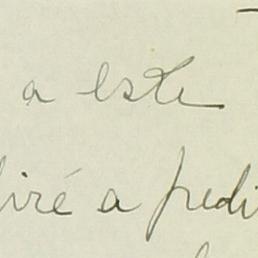 a este
iré a pedi